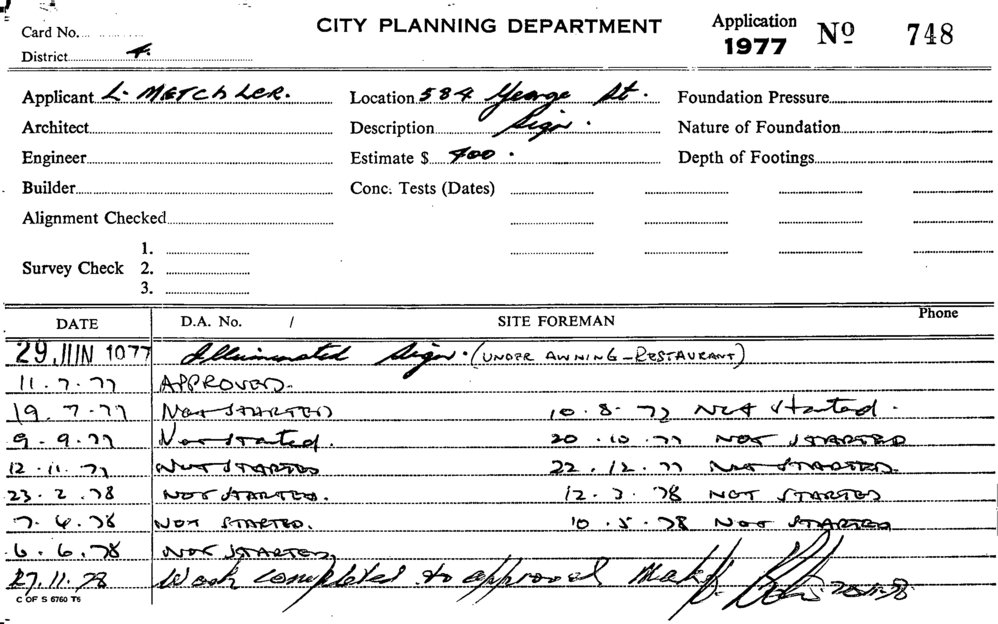 CITY PLANNING DEPARTMENT
Application 1977 Nº 748
Card No.
District 4.
Applicant L. METCHLER. Location 584 George St. Foundation Pressure
Architect Description Sign. Nature of Foundation
Engineer Estimate $ 400. Depth of Footings
Builder Conc. Tests (Dates)
Alignment Checked
1.
Survey Check 2.
3.
DATE D.A. No. / SITE FOREMAN Phone
29 JUN 1977 Illuminated Sign. (UNDER AWNING-RESTAURANT)
11.7.77 APPROVED.
19.7.77 NOT STARTED 10.8.77 Not started.
9.9.77 Not started. 20.10.77 NOT STARTED
12.11.77 NOT STARTED 22.12.77 NOT STARTED.
23.2.78 NOT STARTED. 12.3.78 NOT STARTED
7.4.78 NOT STARTED. 10.5.78 NOT STARTED
6.6.78 NOT STARTED.
27.11.78 Work completed to approval
C OF S 6760 T6